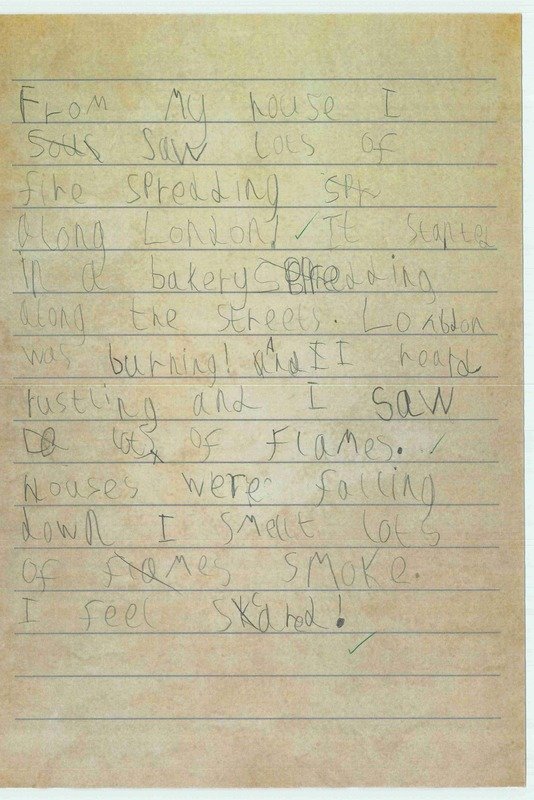 From My house I
Saw lots of
fire spredding
along London! It started
in a bakery spredding
along the streets. London
was burning! And I heard
rustling and I saw
lots of flames.
houses were falling
down I smelt lots
of smoke.
I feel scared!